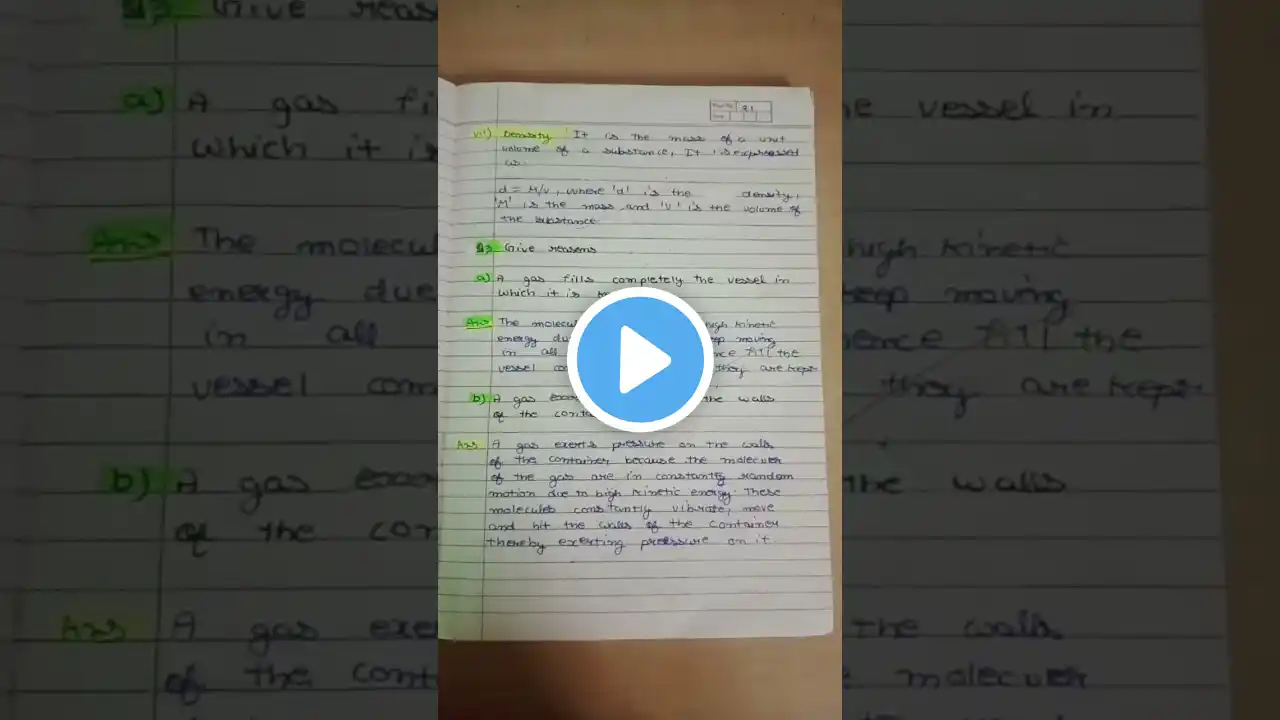 Page No. 21
Date
vii) Density : It is the mass of a unit
volume of a substance, It is expressed
as.
d = M/V, where 'd' is the density,
'M' is the mass and 'V' is the volume of
the substance
Q3 Give reasons
a) A gas fills completely the vessel in
which it is
Ans The molecul high kinetic
energy du keep moving
in all hence All the
vessel com they are kept
b) A gas the walls
of the conta
Ans A gas exerts pressure on the walls
of the container because the molecules
of the gas are in constantly random
motion due to high kinetic energy. These
molecules constantly vibrate, move
and hit the walls of the container
thereby exerting pressure on it.